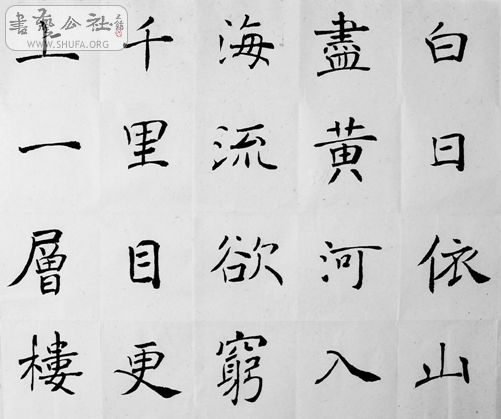 白日依山
盡黄河入
海流欲窮
千里目更
上一層樓
書藝公社
WWW.SHUFA.ORG